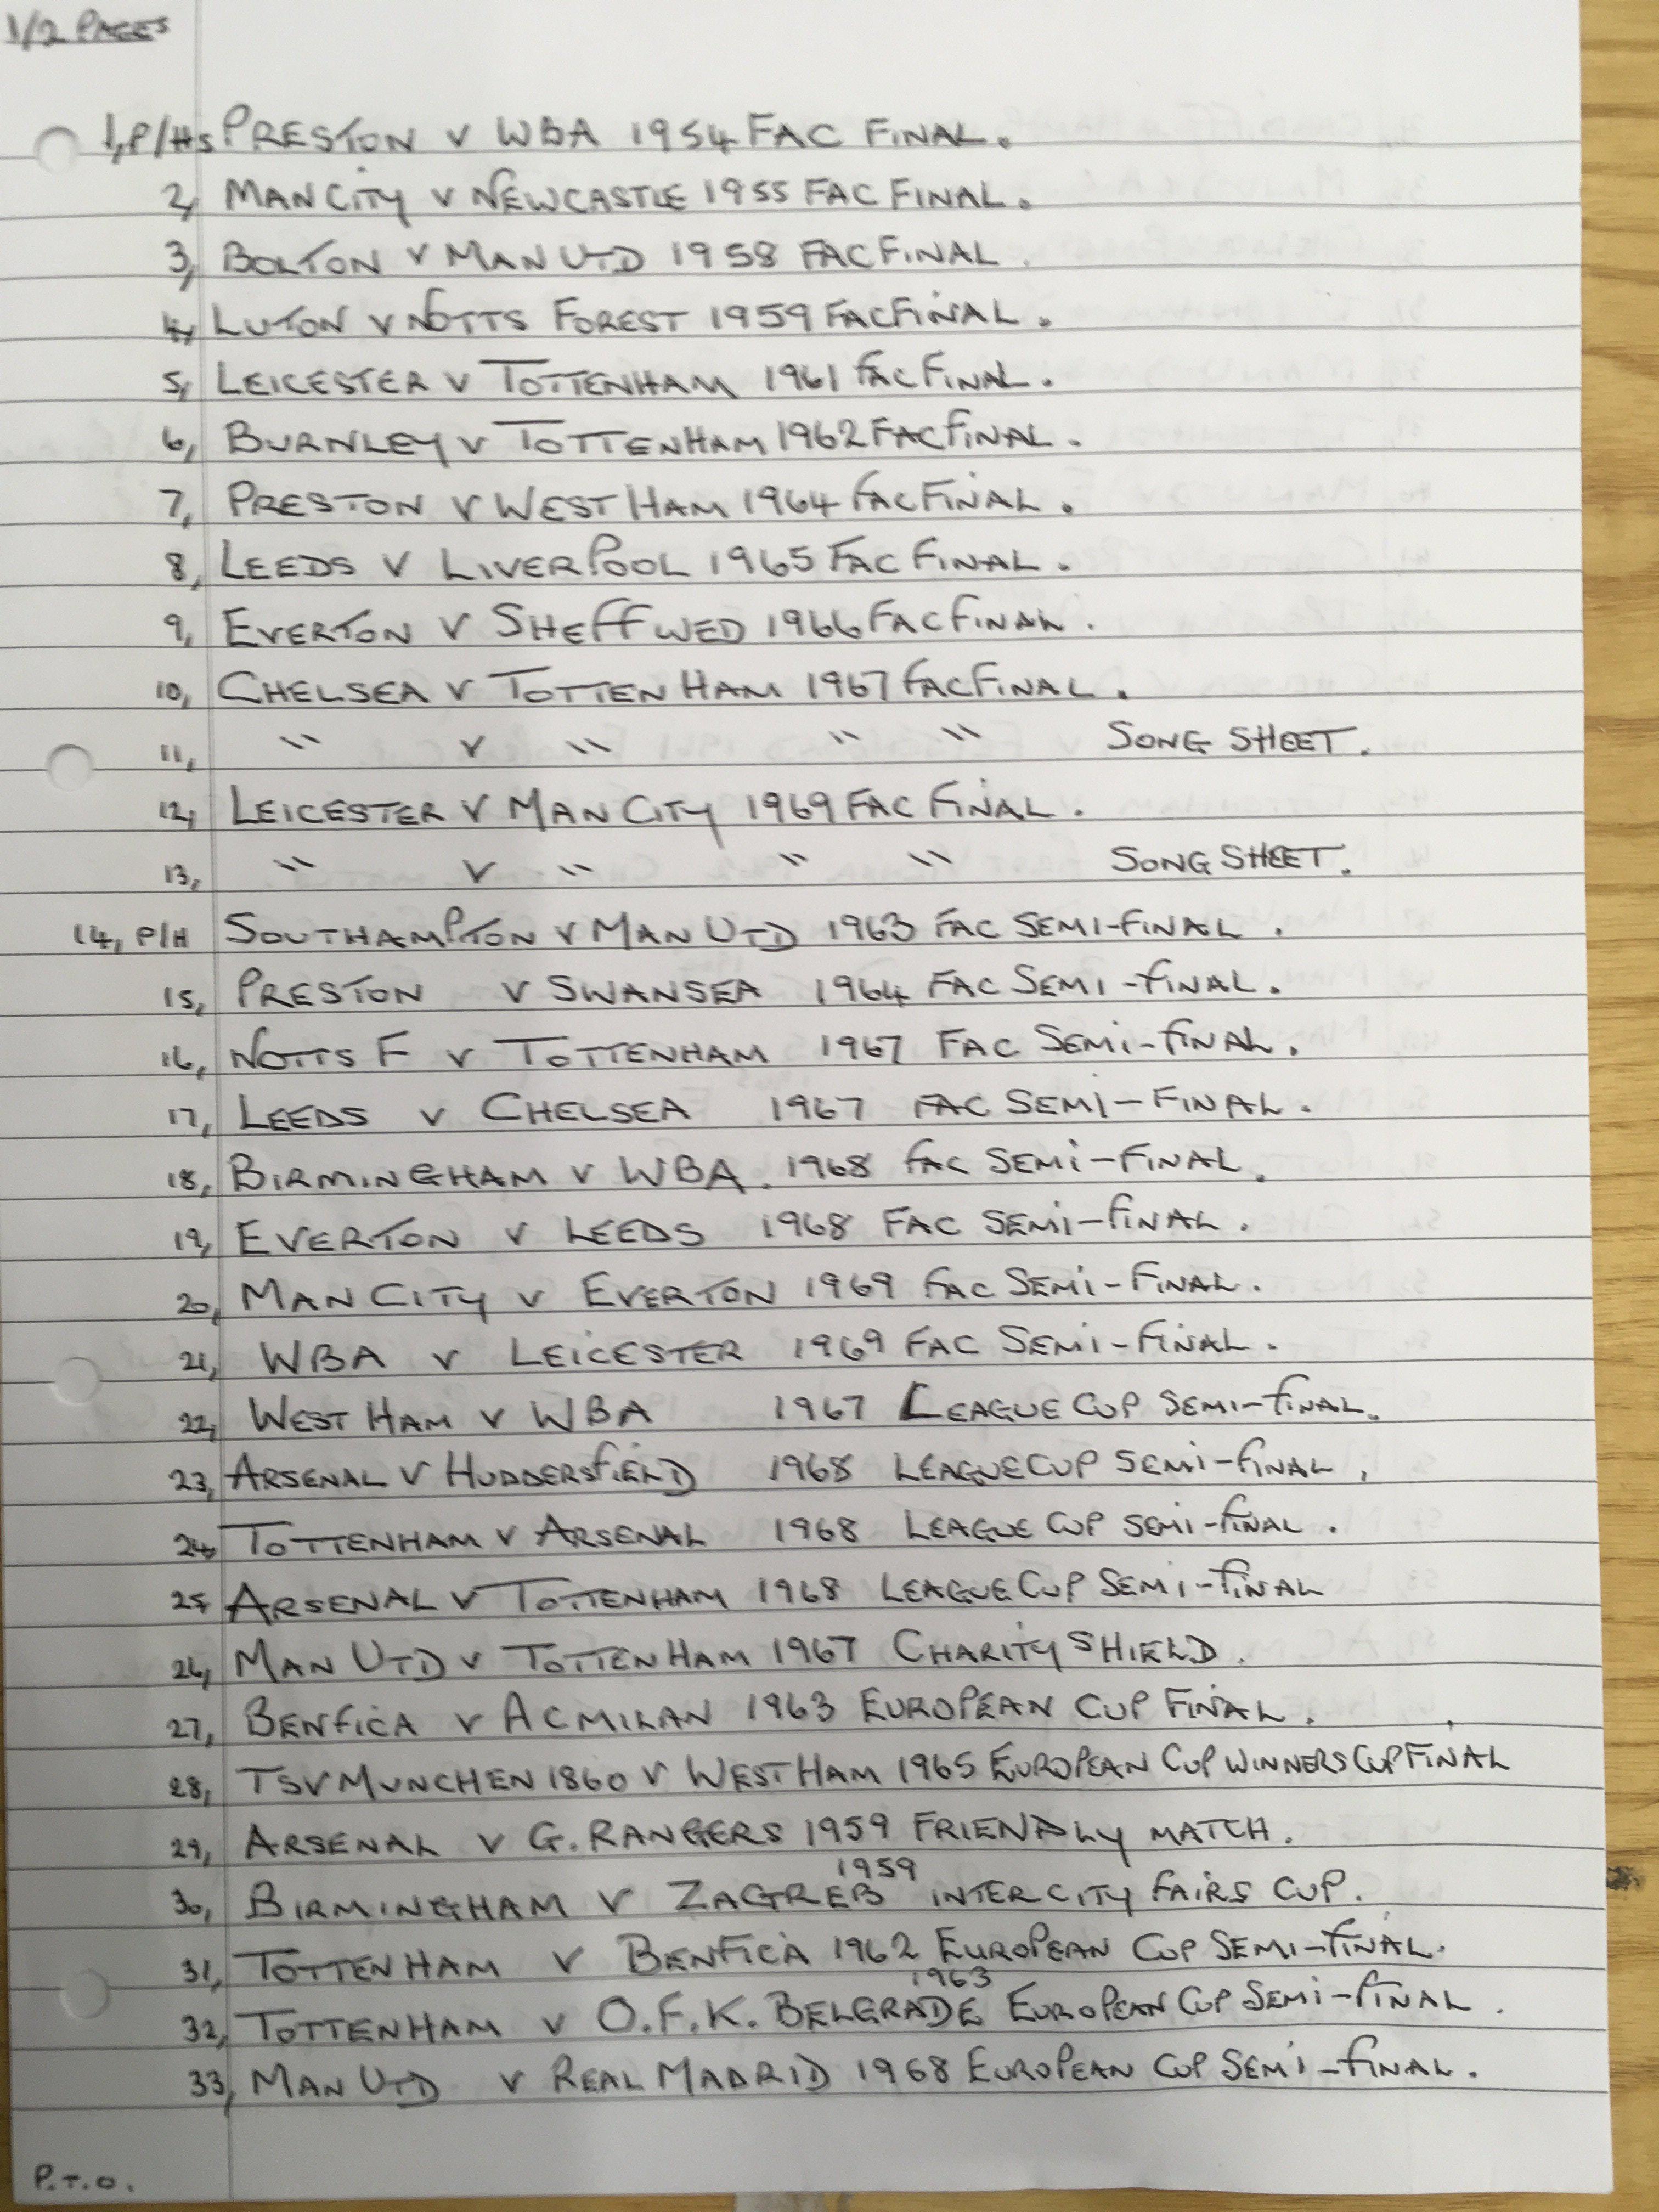 1/2 PAGES
1, P/Hs PRESTON V WBA 1954 FAC FINAL.
2, MAN CITY V NEWCASTLE 1955 FAC FINAL.
3, BOLTON V MAN UTD 1958 FAC FINAL.
4, LUTON V NOTTS FOREST 1959 FAC FINAL.
5, LEICESTER V TOTTENHAM 1961 FAC FINAL.
6, BURNLEY V TOTTENHAM 1962 FAC FINAL.
7, PRESTON V WEST HAM 1964 FAC FINAL.
8, LEEDS V LIVERPOOL 1965 FAC FINAL.
9, EVERTON V SHEFF WED 1966 FAC FINAL.
10, CHELSEA V TOTTENHAM 1967 FAC FINAL.
11, " V " " " SONG SHEET.
12, LEICESTER V MAN CITY 1969 FAC FINAL.
13, " V " " " SONG SHEET.
14, P/H SOUTHAMPTON V MAN UTD 1963 FAC SEMI-FINAL.
15, PRESTON V SWANSEA 1964 FAC SEMI-FINAL.
16, NOTTS F V TOTTENHAM 1967 FAC SEMI-FINAL.
17, LEEDS V CHELSEA 1967 FAC SEMI-FINAL.
18, BIRMINGHAM V WBA. 1968 FAC SEMI-FINAL.
19, EVERTON V LEEDS 1968 FAC SEMI-FINAL.
20, MAN CITY V EVERTON 1969 FAC SEMI-FINAL.
21, WBA V LEICESTER 1969 FAC SEMI-FINAL.
22, WEST HAM V WBA 1967 LEAGUE CUP SEMI-FINAL.
23, ARSENAL V HUDDERSFIELD 1968 LEAGUE CUP SEMI-FINAL.
24, TOTTENHAM V ARSENAL 1968 LEAGUE CUP SEMI-FINAL.
25, ARSENAL V TOTTENHAM 1968 LEAGUE CUP SEMI-FINAL
26, MAN UTD V TOTTENHAM 1967 CHARITY SHIELD.
27, BENFICA V AC MILAN 1963 EUROPEAN CUP FINAL.
28, TSV MUNCHEN 1860 V WEST HAM 1965 EUROPEAN CUP WINNERS CUP FINAL
29, ARSENAL V G. RANGERS 1959 FRIENDLY MATCH.
30, BIRMINGHAM V ZAGREB 1959 INTER CITY FAIRS CUP.
31, TOTTENHAM V BENFICA 1962 EUROPEAN CUP SEMI-FINAL.
32, TOTTENHAM V O.F.K. BELGRADE 1963 EUROPEAN CUP SEMI-FINAL.
33, MAN UTD V REAL MADRID 1968 EUROPEAN CUP SEMI-FINAL.
P.T.O.